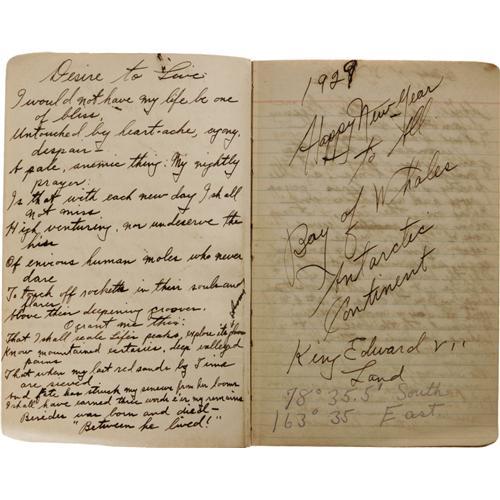 Desire to Live.
I would not have my life be one
of bliss,
Untouched by heart-ache, agony,
despair —
A pale, anemic thing: My nightly
prayer:
Is that with each new day I shall
not miss
High venturing, nor undeserve the
hiss
Of envious human moles who never
dare
To touch off rockets in their souls and
flares
Above their deepening grooves.
O grant me this:
That I shall scale lifes peaks, explore its
Know mountained ecstacies, deep valleyed
pains
That when my last red sands by Time
are sieved
And Fate has struck my
I shall have earned three words o'er my remains
Besides was born and died —
"Between he lived!"
1929
Happy New-Year
to All
Bay of Whales
Antarctic
Continent
King Edward VII
Land
78° 35.5' South
163° 35 East.